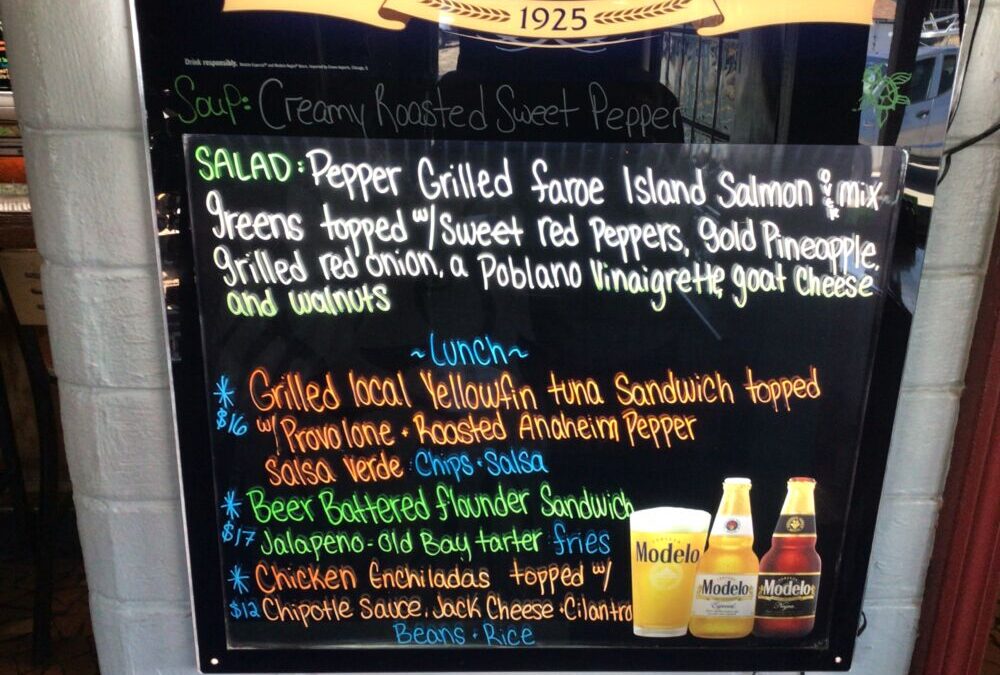 1925
Drink responsibly.
Soup: Creamy Roasted Sweet Pepper
SALAD: Pepper Grilled faroe Island Salmon over mix
greens topped w/ Sweet red Peppers, gold Pineapple,
grilled red onion, a Poblano Vinaigrette, goat Cheese
and walnuts
~Lunch~
* Grilled local Yellowfin tuna Sandwich topped
$16 w/ Provolone · Roasted Anaheim Pepper
Salsa Verde · Chips · Salsa
* Beer Battered flounder Sandwich
$17 Jalapeno-Old Bay tarter fries
* Chicken Enchiladas topped w/
$12 Chipotle Sauce, Jack Cheese · Cilantro
Beans · Rice
Modelo
Modelo
Especial
Modelo
Negra